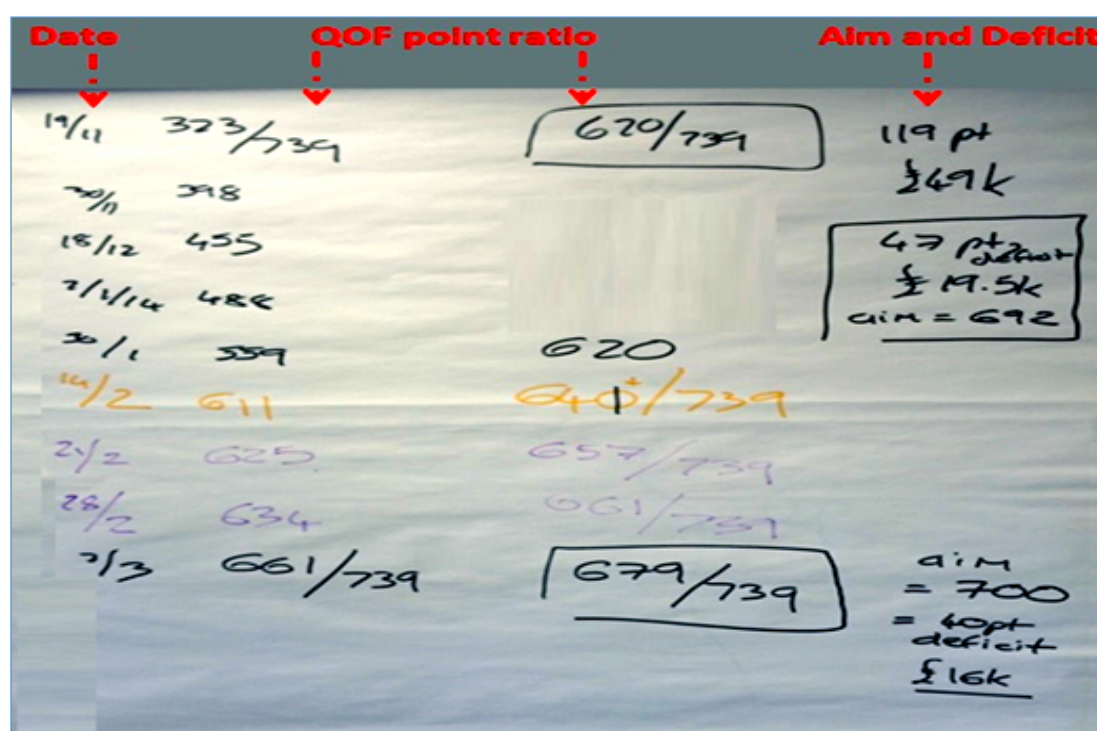 Date QOF point ratio Aim and Deficit
19/11 323/739 620/739 119 pt
£49k
30/11 398
18/12 455 47 pts deficit
£19.5k
aim = 692
7/1/14 488
30/1 559 620
14/2 611 640+/739
21/2 625 657/739
28/2 634 661/739
7/3 661/739 679/739 aim
= 700
= 40pt
deficit
£16k